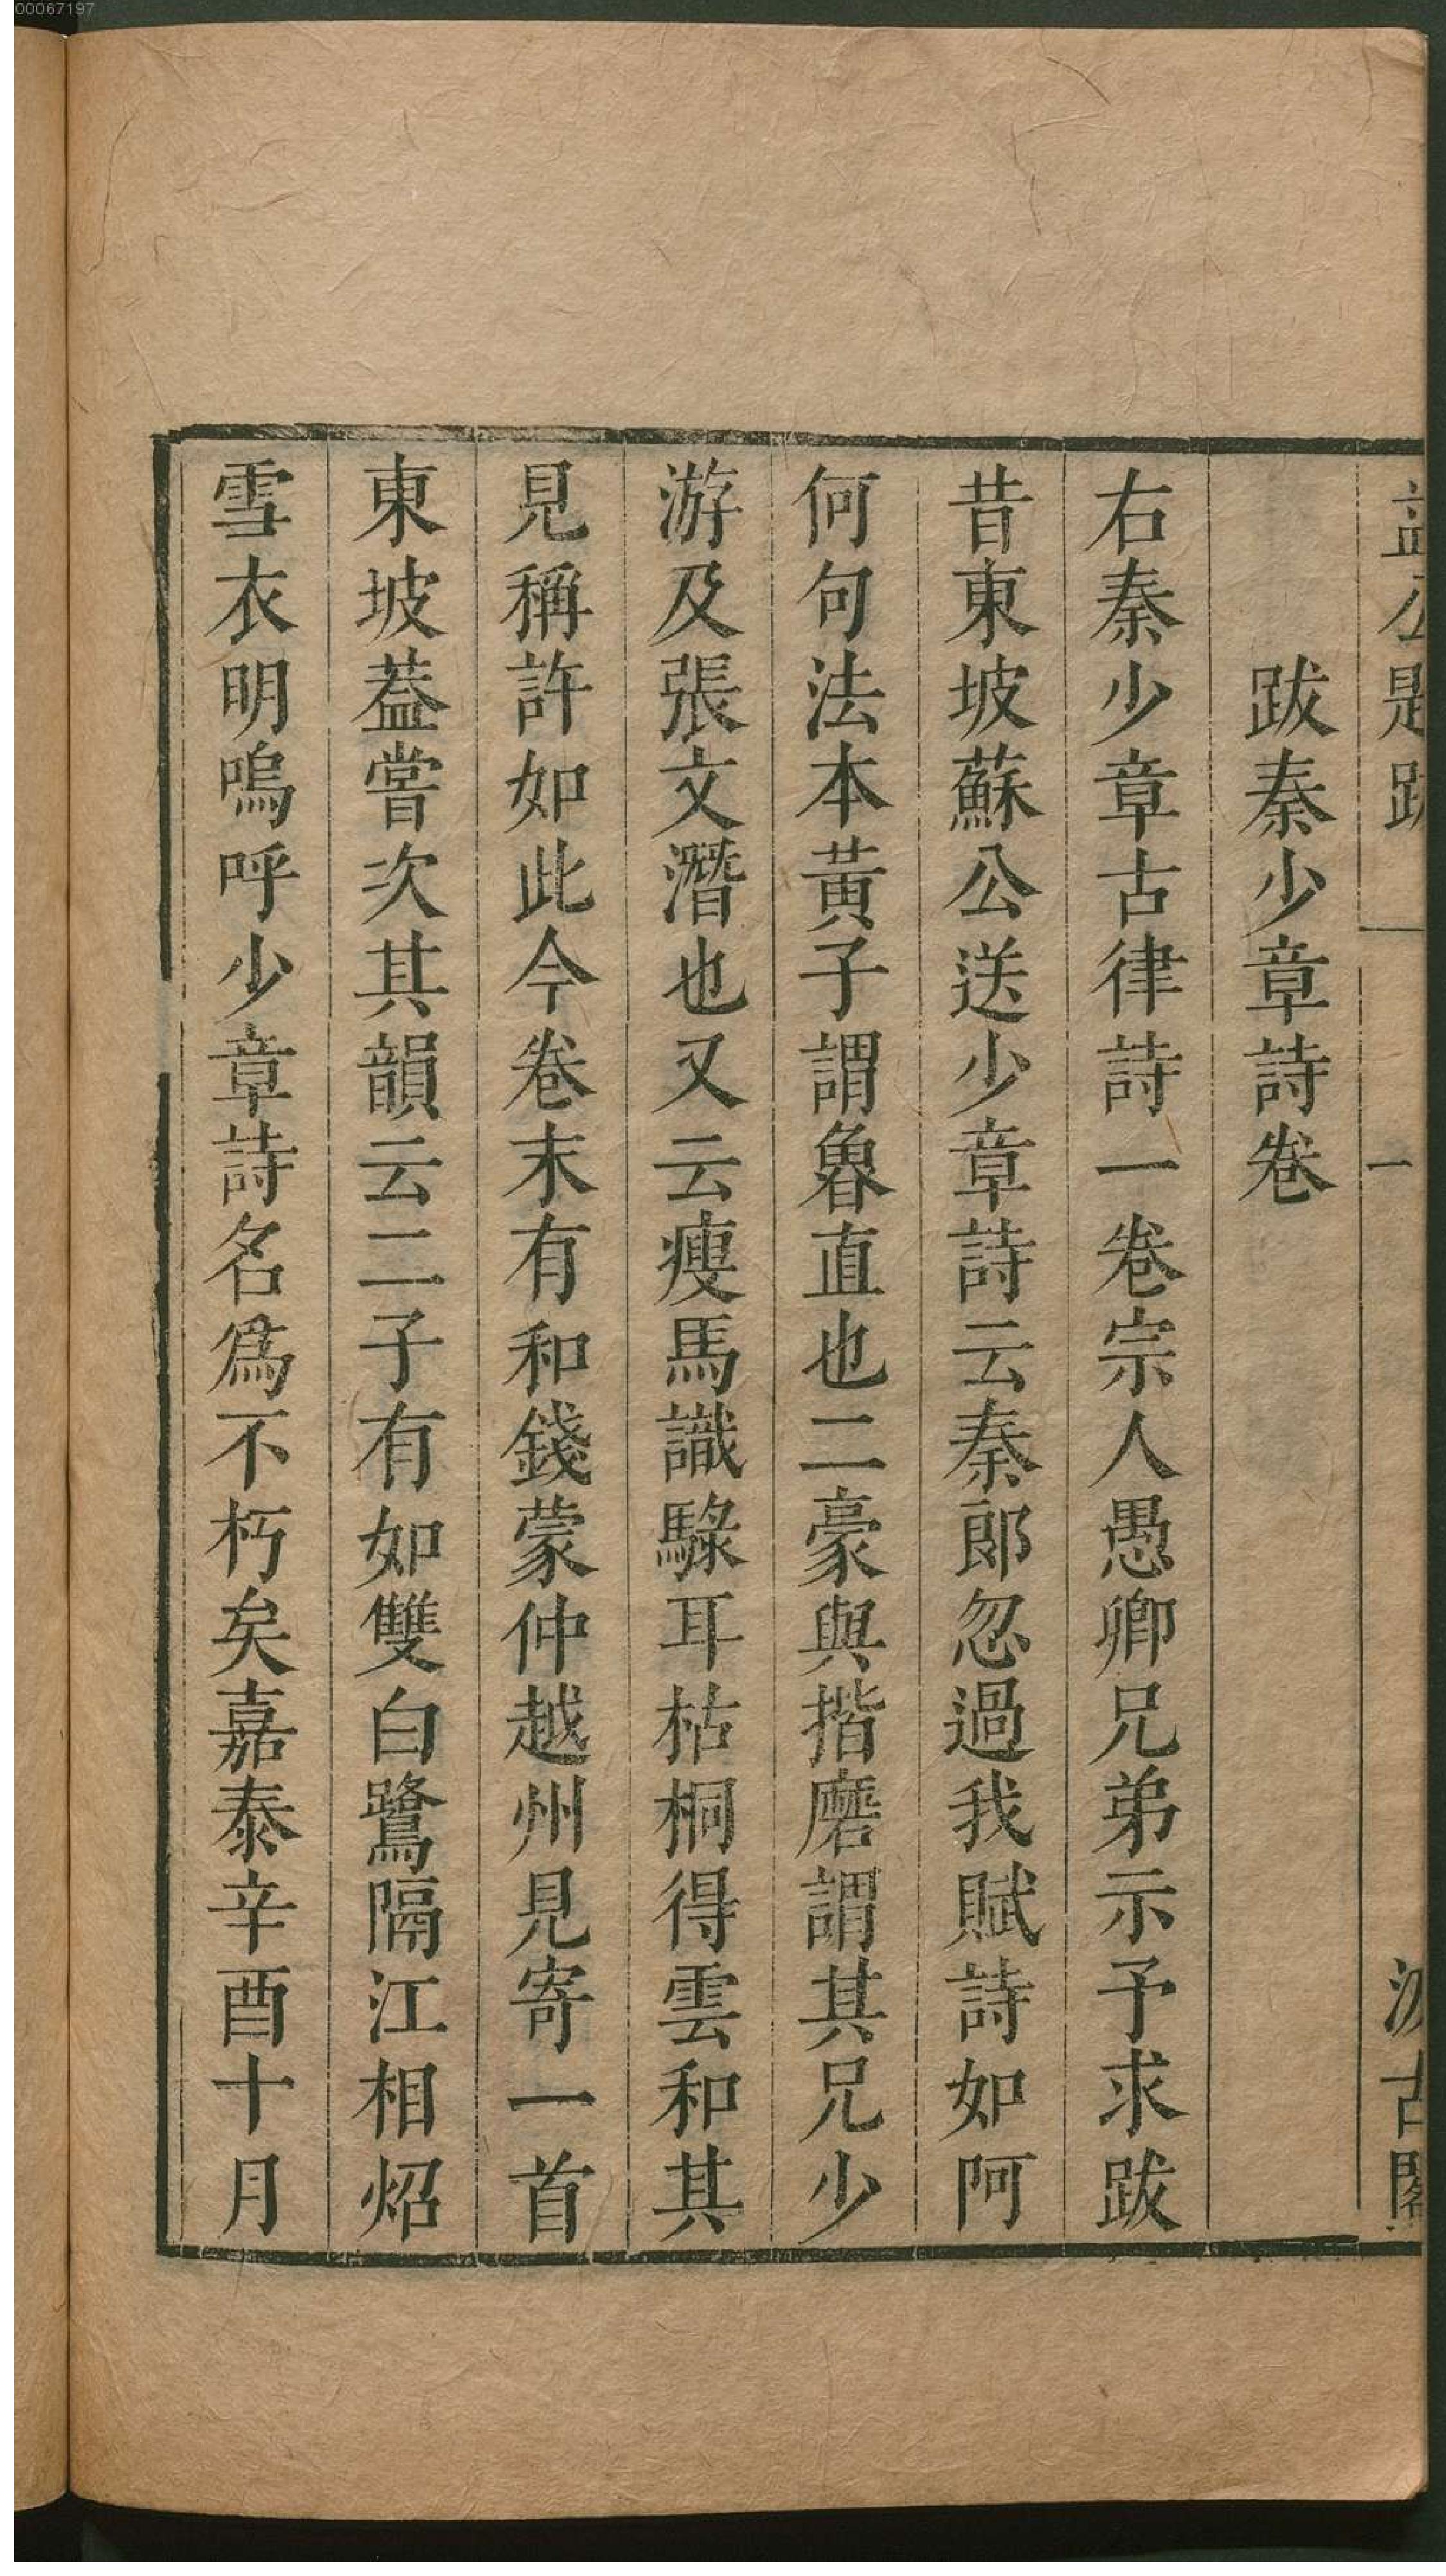 00067197
益公題跋 一 汲古閣
跋秦少章詩卷
右秦少章古律詩一卷宗人愚卿兄弟示予求跋
昔東坡蘇公送少章詩云秦郎忽過我賦詩如阿
何句法本黃子謂魯直也二豪與揩磨謂其兄少
游及張文潛也又云瘦馬識騄耳枯桐得雲和其
見稱許如此今卷末有和錢蒙仲越州見寄一首
東坡葢嘗次其韻云二子有如雙白鷺隔江相炤
雪衣明嗚呼少章詩名爲不朽矣嘉泰辛酉十月